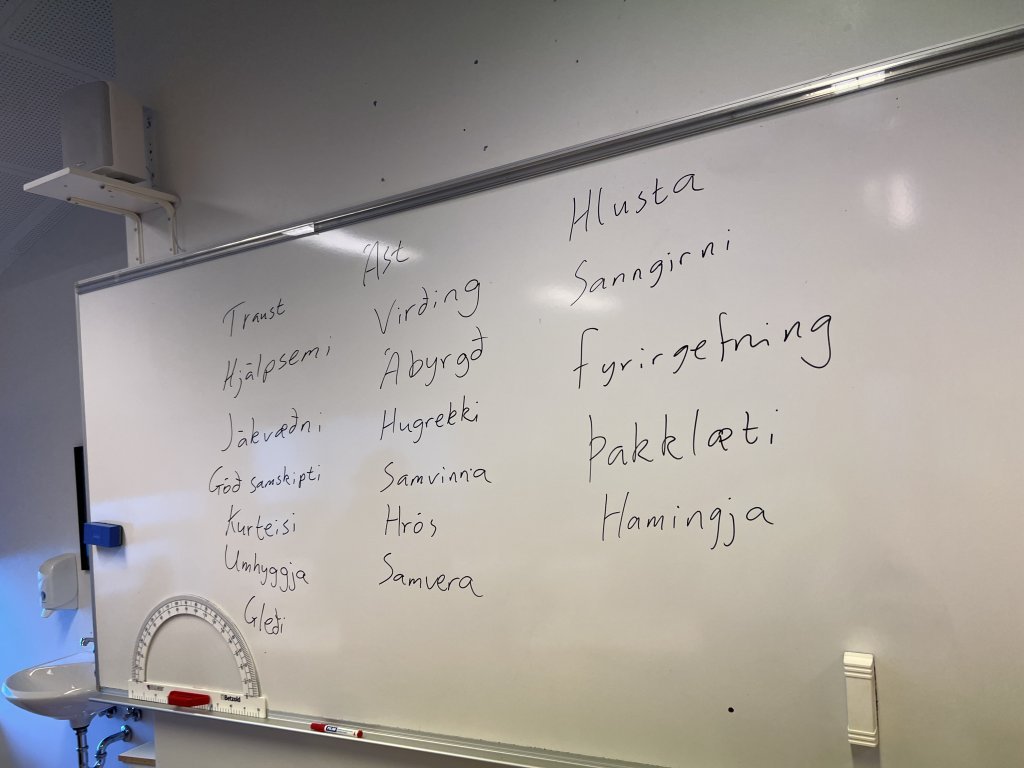 Traust
Hjálpsemi
Jákvæðni
Góð samskipti
Kurteisi
Umhyggja
Gleði
Ást
Virðing
Ábyrgð
Hugrekki
Samvinna
Hrós
Samvera
Hlusta
Sanngirni
Fyrirgefning
Þakklæti
Hamingja
Betzold